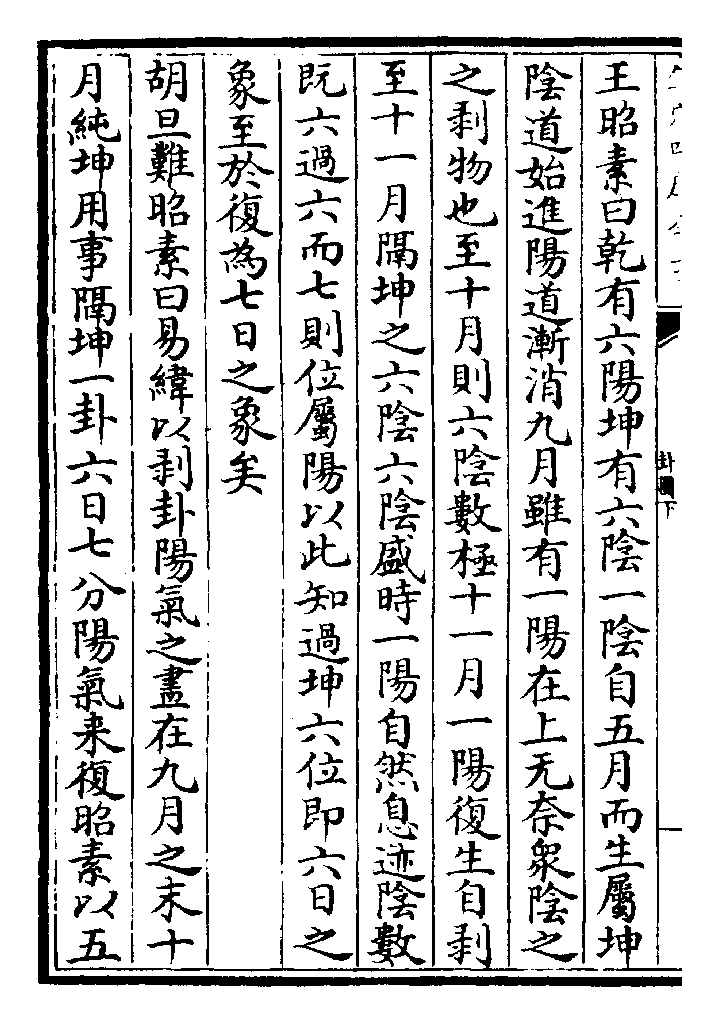 王昭素曰乾有六陽坤有六陰一陰自五月而生屬坤
陰道始進陽道漸消九月雖有一陽在上无奈衆陰之
之剥物也至十月則六陰數極十一月一陽復生自剥
至十一月隔坤之六陰六陰盛時一陽自然息迹陰數
既六過六而七則位屬陽以此知過坤六位即六日之
象至於復為七日之象矣
胡旦難昭素曰易緯以剥卦陽氣之盡在九月之末十
月純坤用事隔坤一卦六日七分陽氣来復昭素以五
卦圖下